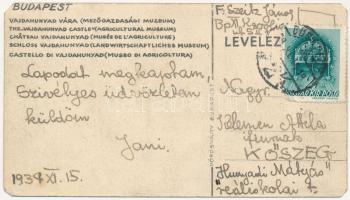 BUDAPEST
VAJDAHUNYAD VÁRA (MEZŐGAZDASÁGI MUZEUM)
THE VAJDAHUNYAD CASTLE (AGRICULTURAL MUSEUM)
CHÂTEAU VAJDAHUNYAD (MUSÉE DE L'AGRICULTURE)
SCHLOSS VAJDAHUNYAD (LANDWIRTSCHAFTLICHES MUSEUM)
CASTELLO DI VAJDAHUNYAD (MUSEO DI AGRICOLTURA)
Lapodat megkaptam,
Szivélyes üdvözletem
küldöm
Jani.
193 XI. 15.
F. Szeitz János
Bp.
LEVELEZ
MAGYAR POSTA
Nagys.
Kelemen Attila
úrnak
KŐSZEG
"Hunyadi Mátyás"
reáliskolai